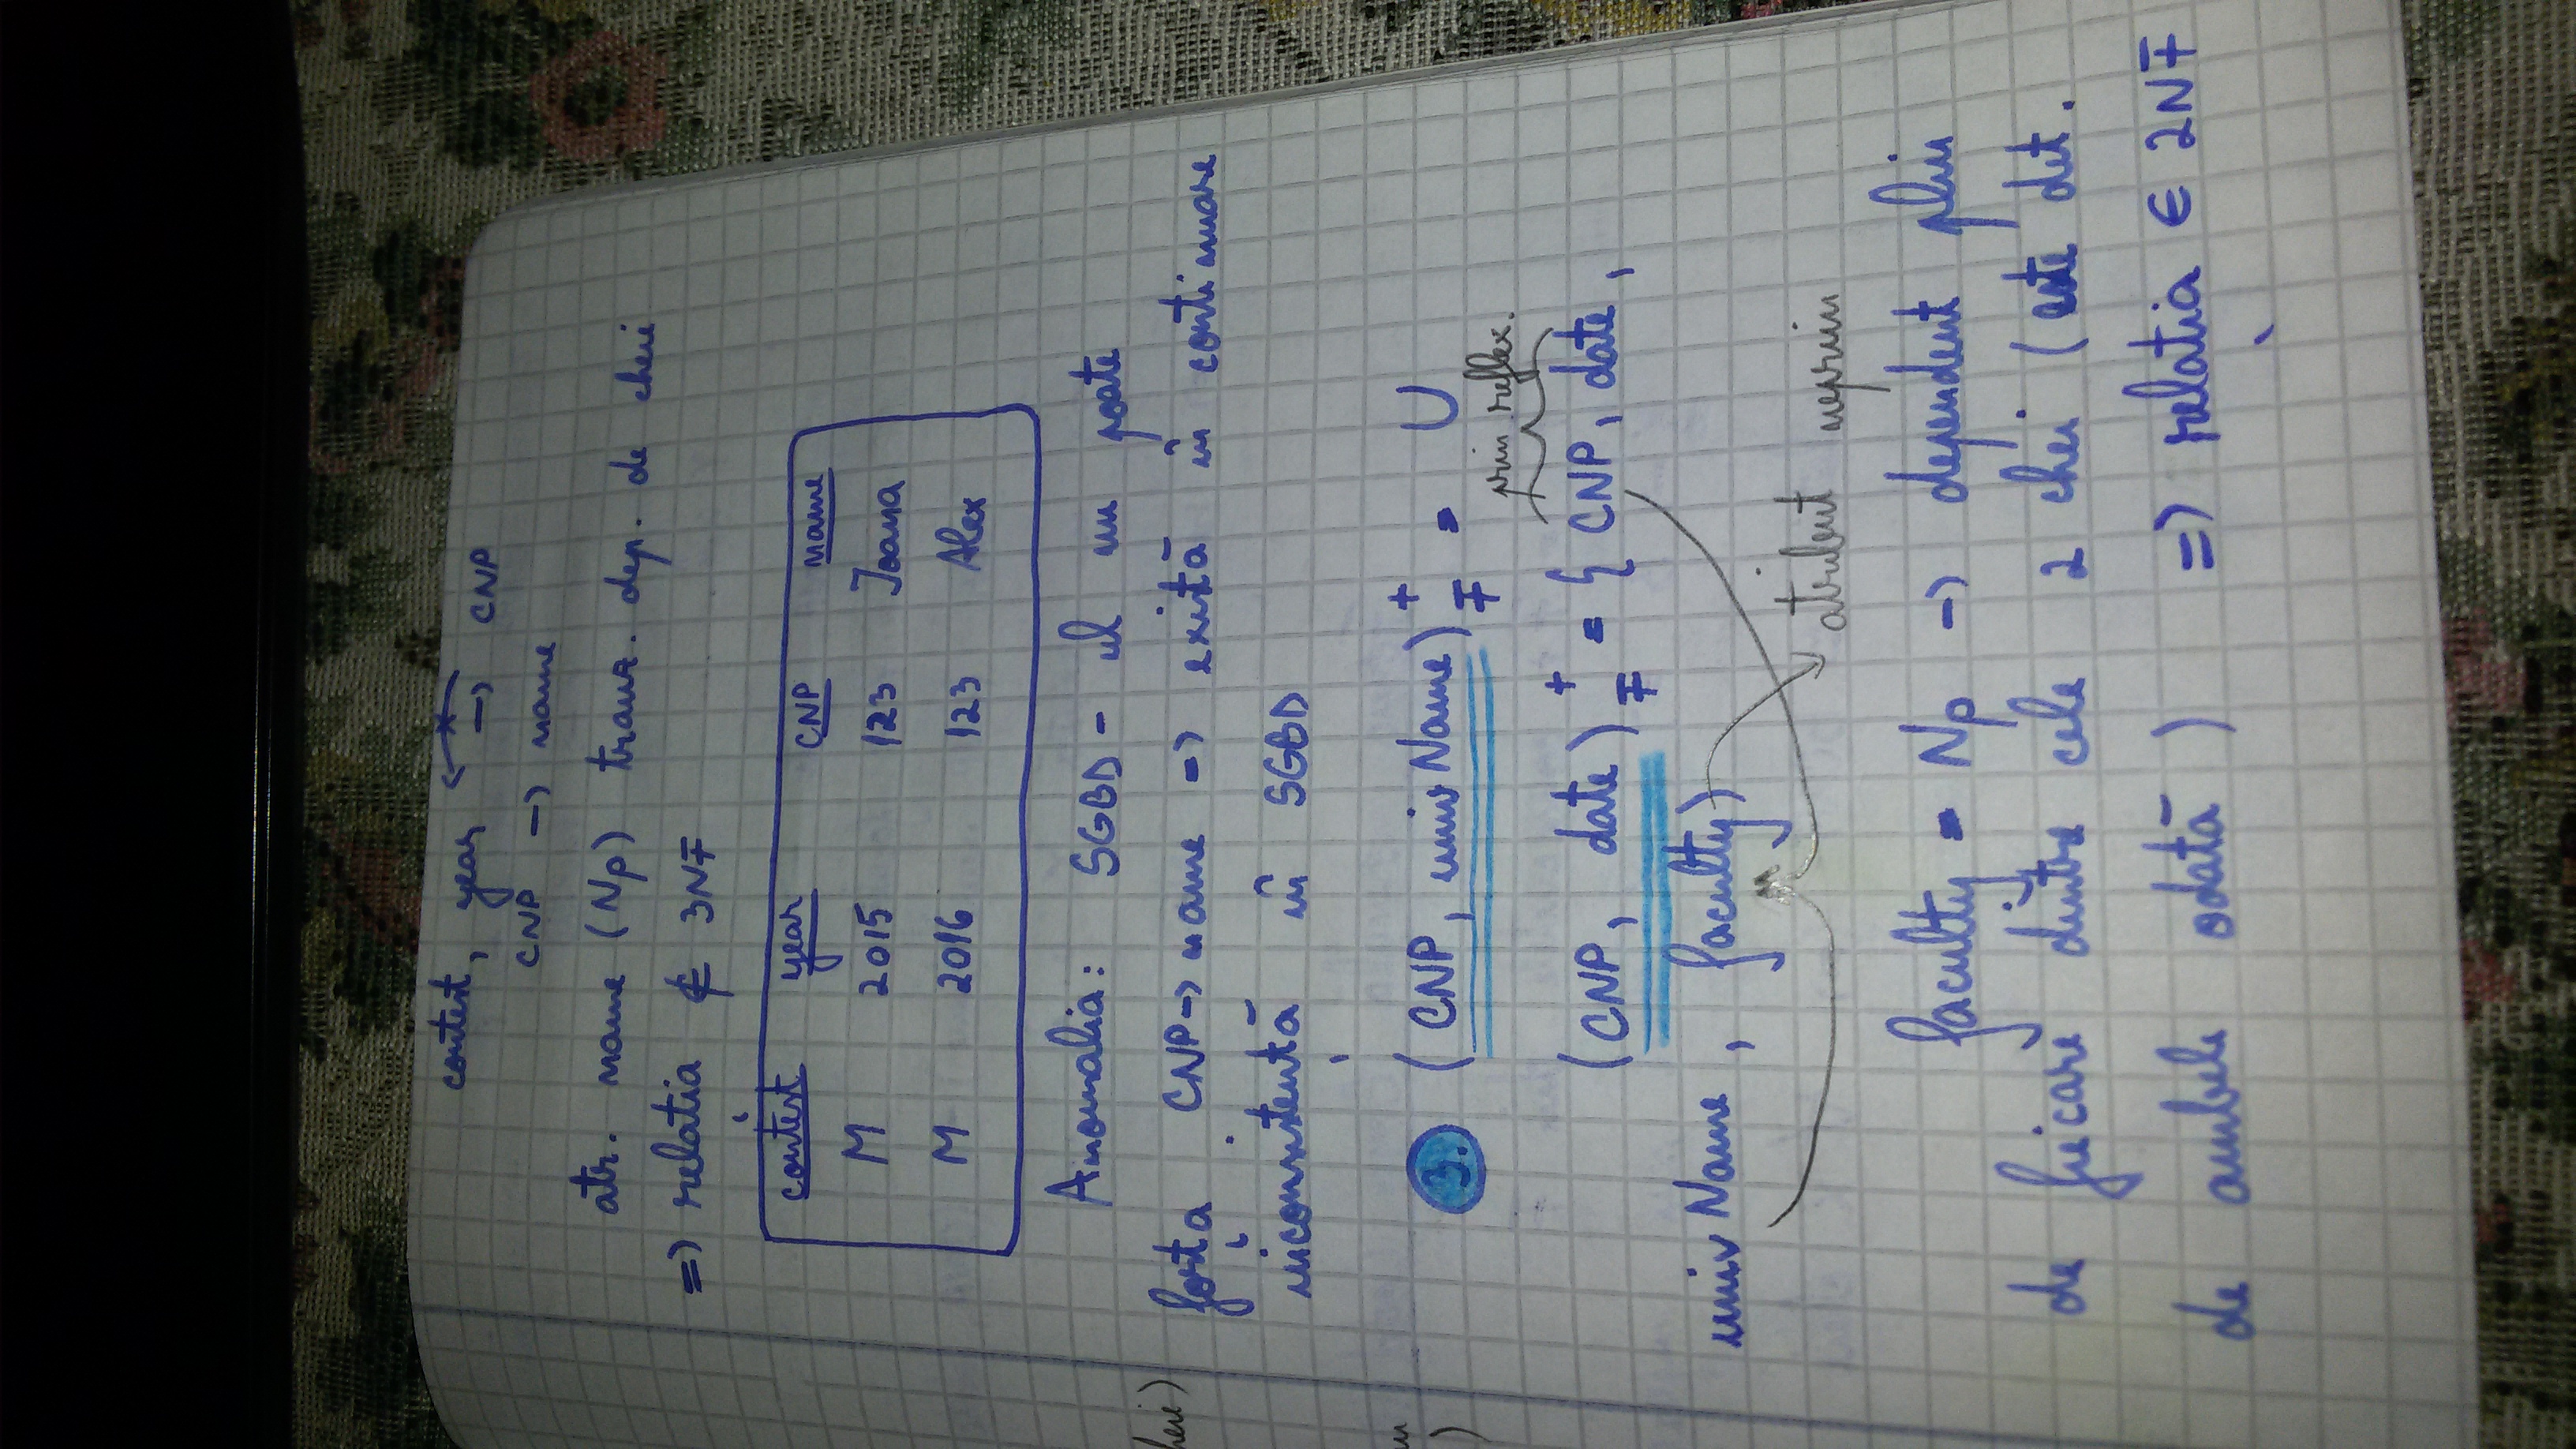 contest, year → CNP
CNP → name
atr. name (Np) tranz. dep. de chei
=> relația ∉ 3NF
contest year CNP name
M 2015 123 Ioana
M 2016 123 Alex
Anomalia: SGBD-ul nu poate
forța CNP → name => există în continuare
inconsistență în SGBD
3. (CNP, univName)⁺F = U
prin reflex.
(CNP, date)⁺F = { CNP, date,
univName, faculty}
atribut neprim
faculty = Np → dependent plin
de fiecare dintre cele 2 chei (este det.
de ambele odată) => relația ∈ 2NF